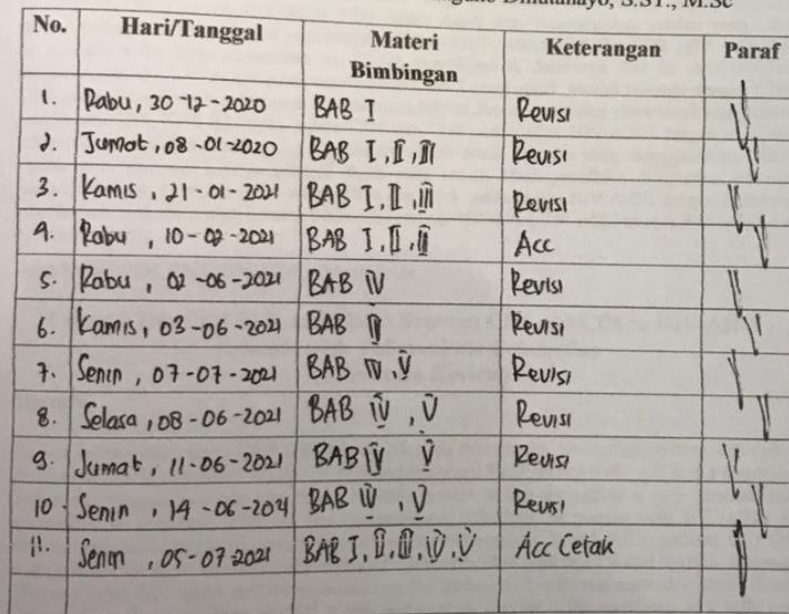 S.ST., M.Sc
No. Hari/Tanggal Materi Bimbingan Keterangan Paraf
1. Rabu, 30-12-2020 BAB I Revisi
2. Jumat, 08-01-2020 BAB I, II, III Revisi
3. Kamis, 21-01-2021 BAB I, II, III Revisi
4. Rabu, 10-02-2021 BAB I, II, III Acc
5. Rabu, 02-06-2021 BAB IV Revisi
6. Kamis, 03-06-2021 BAB IV Revisi
7. Senin, 07-07-2021 BAB IV, V Revisi
8. Selasa, 08-06-2021 BAB IV, V Revisi
9. Jumat, 11-06-2021 BAB IV V Revisi
10. Senin, 14-06-2021 BAB IV, V Revisi
11. Senin, 05-07-2021 BAB I, II, III, IV, V Acc Cetak